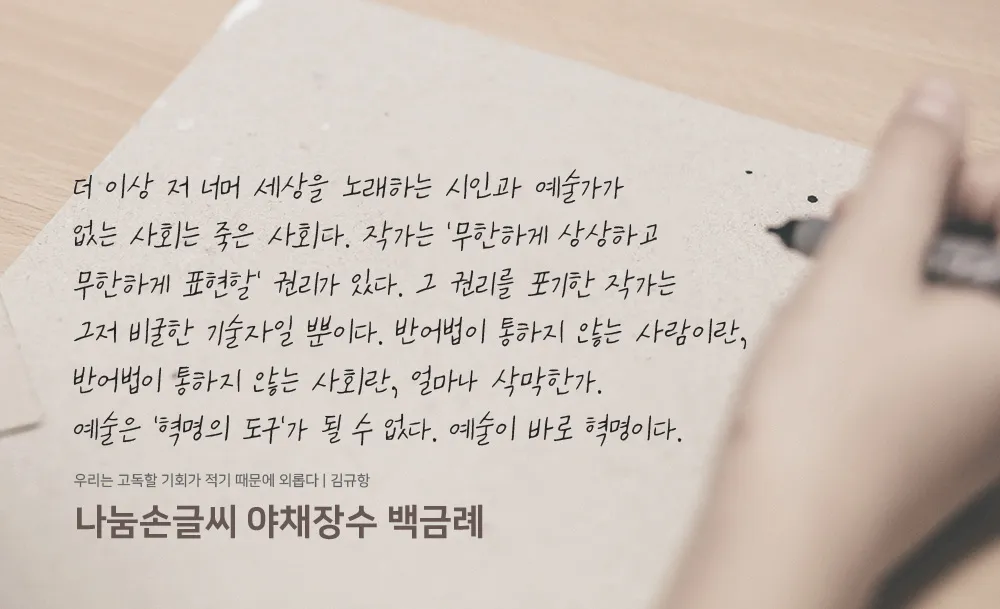 더 이상 저 너머 세상을 노래하는 시인과 예술가가
없는 사회는 죽은 사회다. 작가는 '무한하게 상상하고
무한하게 표현할' 권리가 있다. 그 권리를 포기한 작가는
그저 비굴한 기술자일 뿐이다. 반어법이 통하지 않는 사람이란,
반어법이 통하지 않는 사회란, 얼마나 삭막한가.
예술은 '혁명의 도구'가 될 수 없다. 예술이 바로 혁명이다.
우리는 고독할 기회가 적기 때문에 외롭다 | 김규항
나눔손글씨 야채장수 백금례